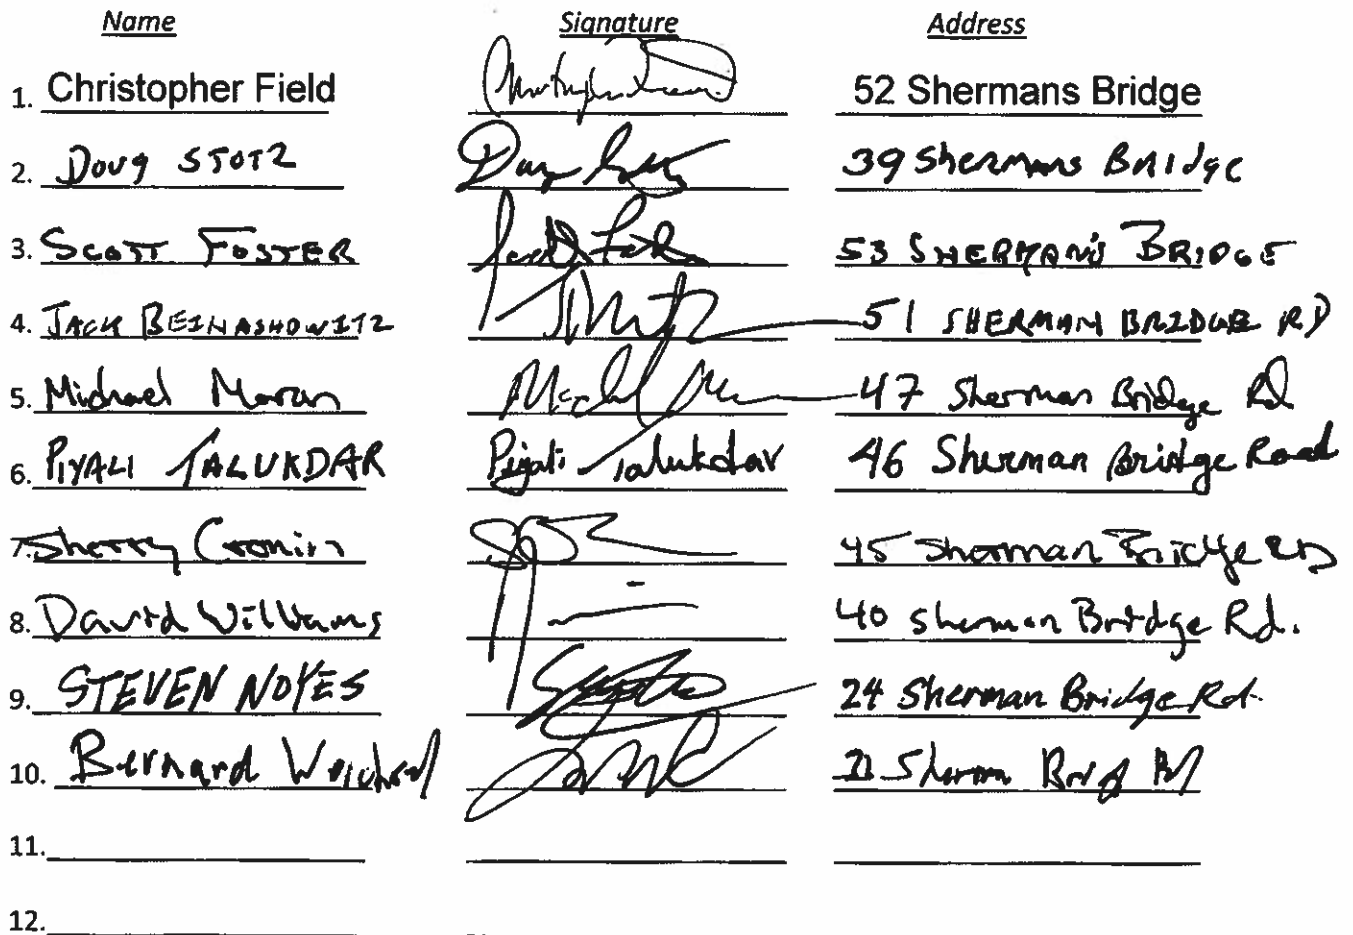 Name Signature Address
1. Christopher Field 52 Shermans Bridge
2. Doug STOTZ 39 Shermans Bridge
3. SCOTT FOSTER 53 SHERMAN'S BRIDGE
4. JACK BEINASHOWITZ 51 SHERMAN BRIDGE RD
5. Michael Moran 47 Sherman Bridge Rd
6. PIYALI TALUKDAR Piyali Talukdar 46 Sherman Bridge Road
7. Sherry Cronin 45 Sherman Bridge RD
8. David Williams 40 Sherman Bridge Rd.
9. STEVEN NOYES 24 Sherman Bridge Rd.
10. Bernard
11.
12.